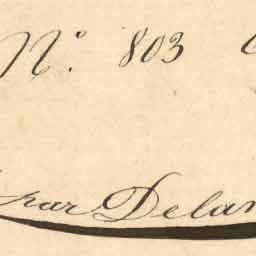 N.º 803
par Delan